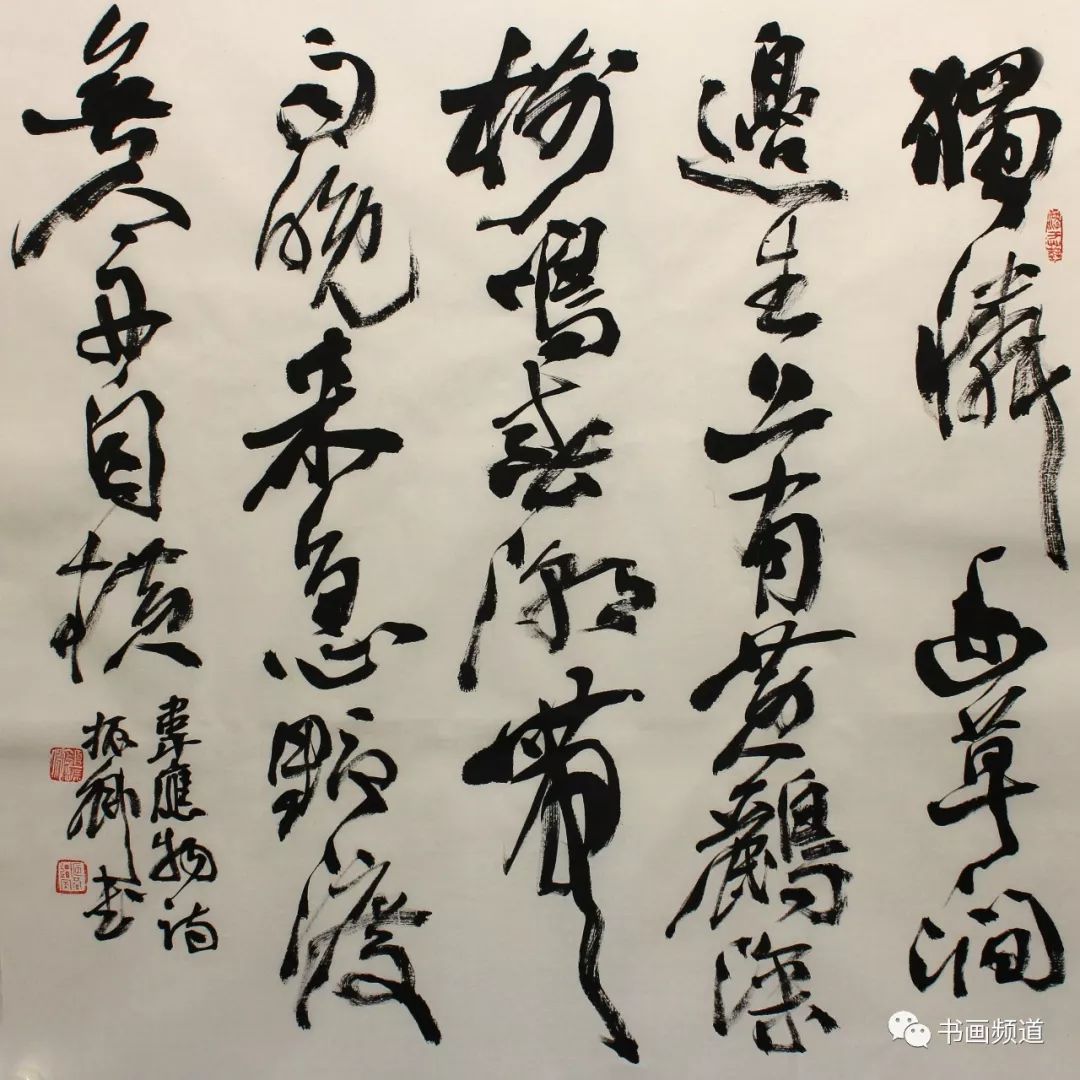 獨憐幽草澗
邊生上有黄鸝深
樹鳴春潮帶
雨晚来急野渡
無人舟自横
韋應物詩
振 書
书画频道